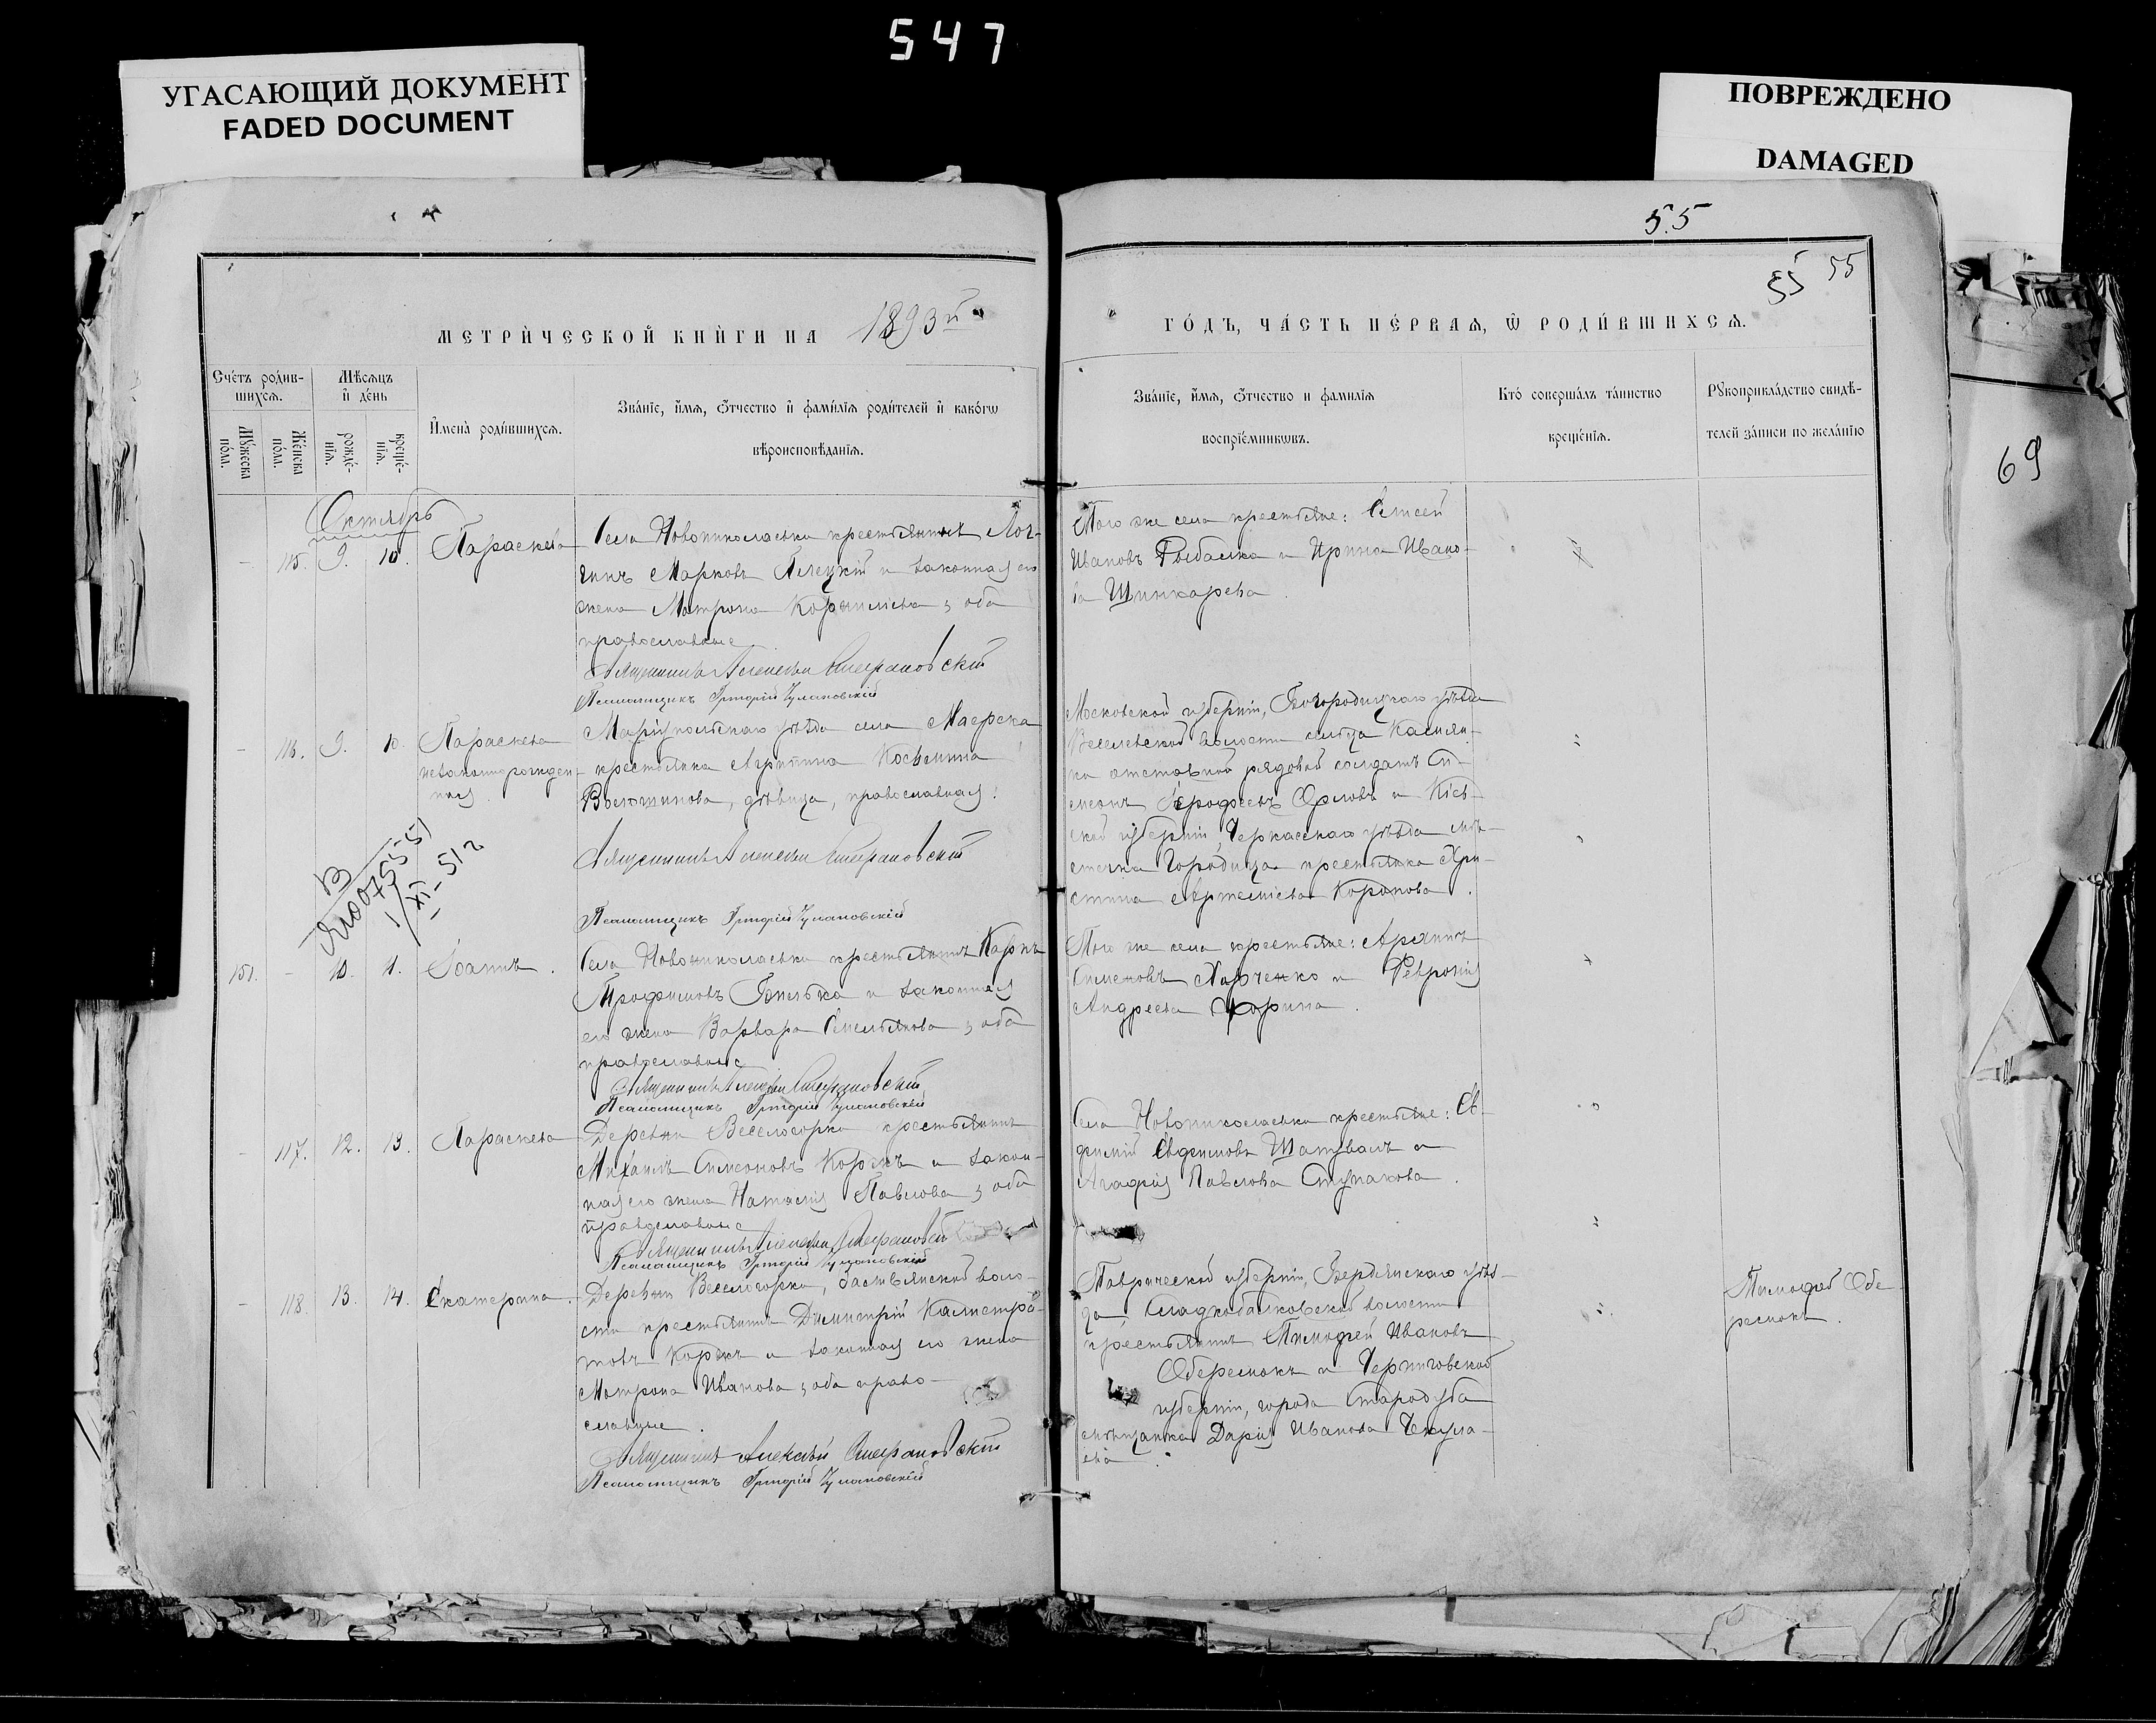 547
УГАСАЮЩИЙ ДОКУМЕНТ
FADED DOCUMENT
ПОВРЕЖДЕНО
DAMAGED
55
55 55
69
МЕТРИ́ЧЕСКОЙ КНИ́ГИ НА 1893й
ГО́ДЪ, ЧА́СТЬ ПЕ́РВАЯ, Ѡ РОДИ́ВШИХСЯ.
Сче́тъ роди́в-
шихся.
Му́жеска по́ла.
Же́нска по́ла.
Мѣсяцъ и де́нь
рожде́-
нія.
креще́-
нія.
Имена̀ роди́вшихся.
Зва́ніе, и́мя, о́тчество и фами́лія роди́телей и како́гѡ
вѣроисповѣ́данія.
Зва́ніе, и́мя, о́тчество и фамилія
воспріе́мниковъ.
Кто́ соверша́лъ та́инство
креще́нія.
Рукоприкла́дство свидѣ́-
телей за́писи по жела́нію
Октябрь
115. 9. 10. Параскева
Села Новониколаевки крестьянинъ Лог-
гинъ Марковъ и законная его
жена Матрона Корнилiева, оба
православные
Священникъ Алексѣй Стефановскій
Псаломщикъ Григорій
Того же села крестьяне: Елисей
Ивановъ Рыбалка и Ирина Ивано-
ва Шинкарева.
116. 9. 10. Параскева
незаконнорожден-
ная
Маріупольскаго уѣзда села Маерска
крестьянка Агрипина Косьмина
Волошинова, дѣвица, православная.
Священникъ Алексѣй Стефановскій
Псаломщикъ Григорій
Московской губерніи, Богородицкаго уѣзда
волости сельца
отставной рядовой солдатъ Си-
меонъ Орловъ и Кіев-
ской губерніи, Черкасскаго уѣзда мѣ-
стечка Городища крестьянка Хри-
стина Артеміева
В
1/XI-51 г
151. - 10. 11. Іоаннъ.
Села Новониколаевки крестьянинъ Карпъ
Трофимовъ и законная
его жена Варвара Емельянова, оба
православные
Священникъ Алексѣй Стефановскій
Псаломщикъ Григорій
Того же села крестьяне:
Симеоновъ Харченко и Февронія
Андреева
- 117. 12. 13. Параскева
Деревни Веселогорки крестьянинъ
Михаилъ Симеоновъ Коржъ и закон-
ная его жена Наталія Павлова, оба
православные
Священникъ Алексѣй Стефановскій
Псаломщикъ Григорій
Села Новониколаевки крестьяне: Ев-
фимій Евфимовъ Шаповалъ и
Агафія Павлова Ступакова.
- 118. 13. 14. Екатерина.
Деревни Веселогорки, воло-
сти крестьянинъ Димитрій Калистра-
товъ Коржъ и законная его жена
Матрона Иванова, оба право-
славные.
Священникъ Алексѣй Стефановскій
Псаломщикъ Григорій
Таврической губерніи, Бердянскаго уѣз-
да, Сладкобалковской волости
крестьянинъ Тимофей Ивановъ
Оберемокъ и Черниговской
губерніи, города Стародуба
мѣщанка Дарія Иванова
Тимофей Обе-
ремокъ.